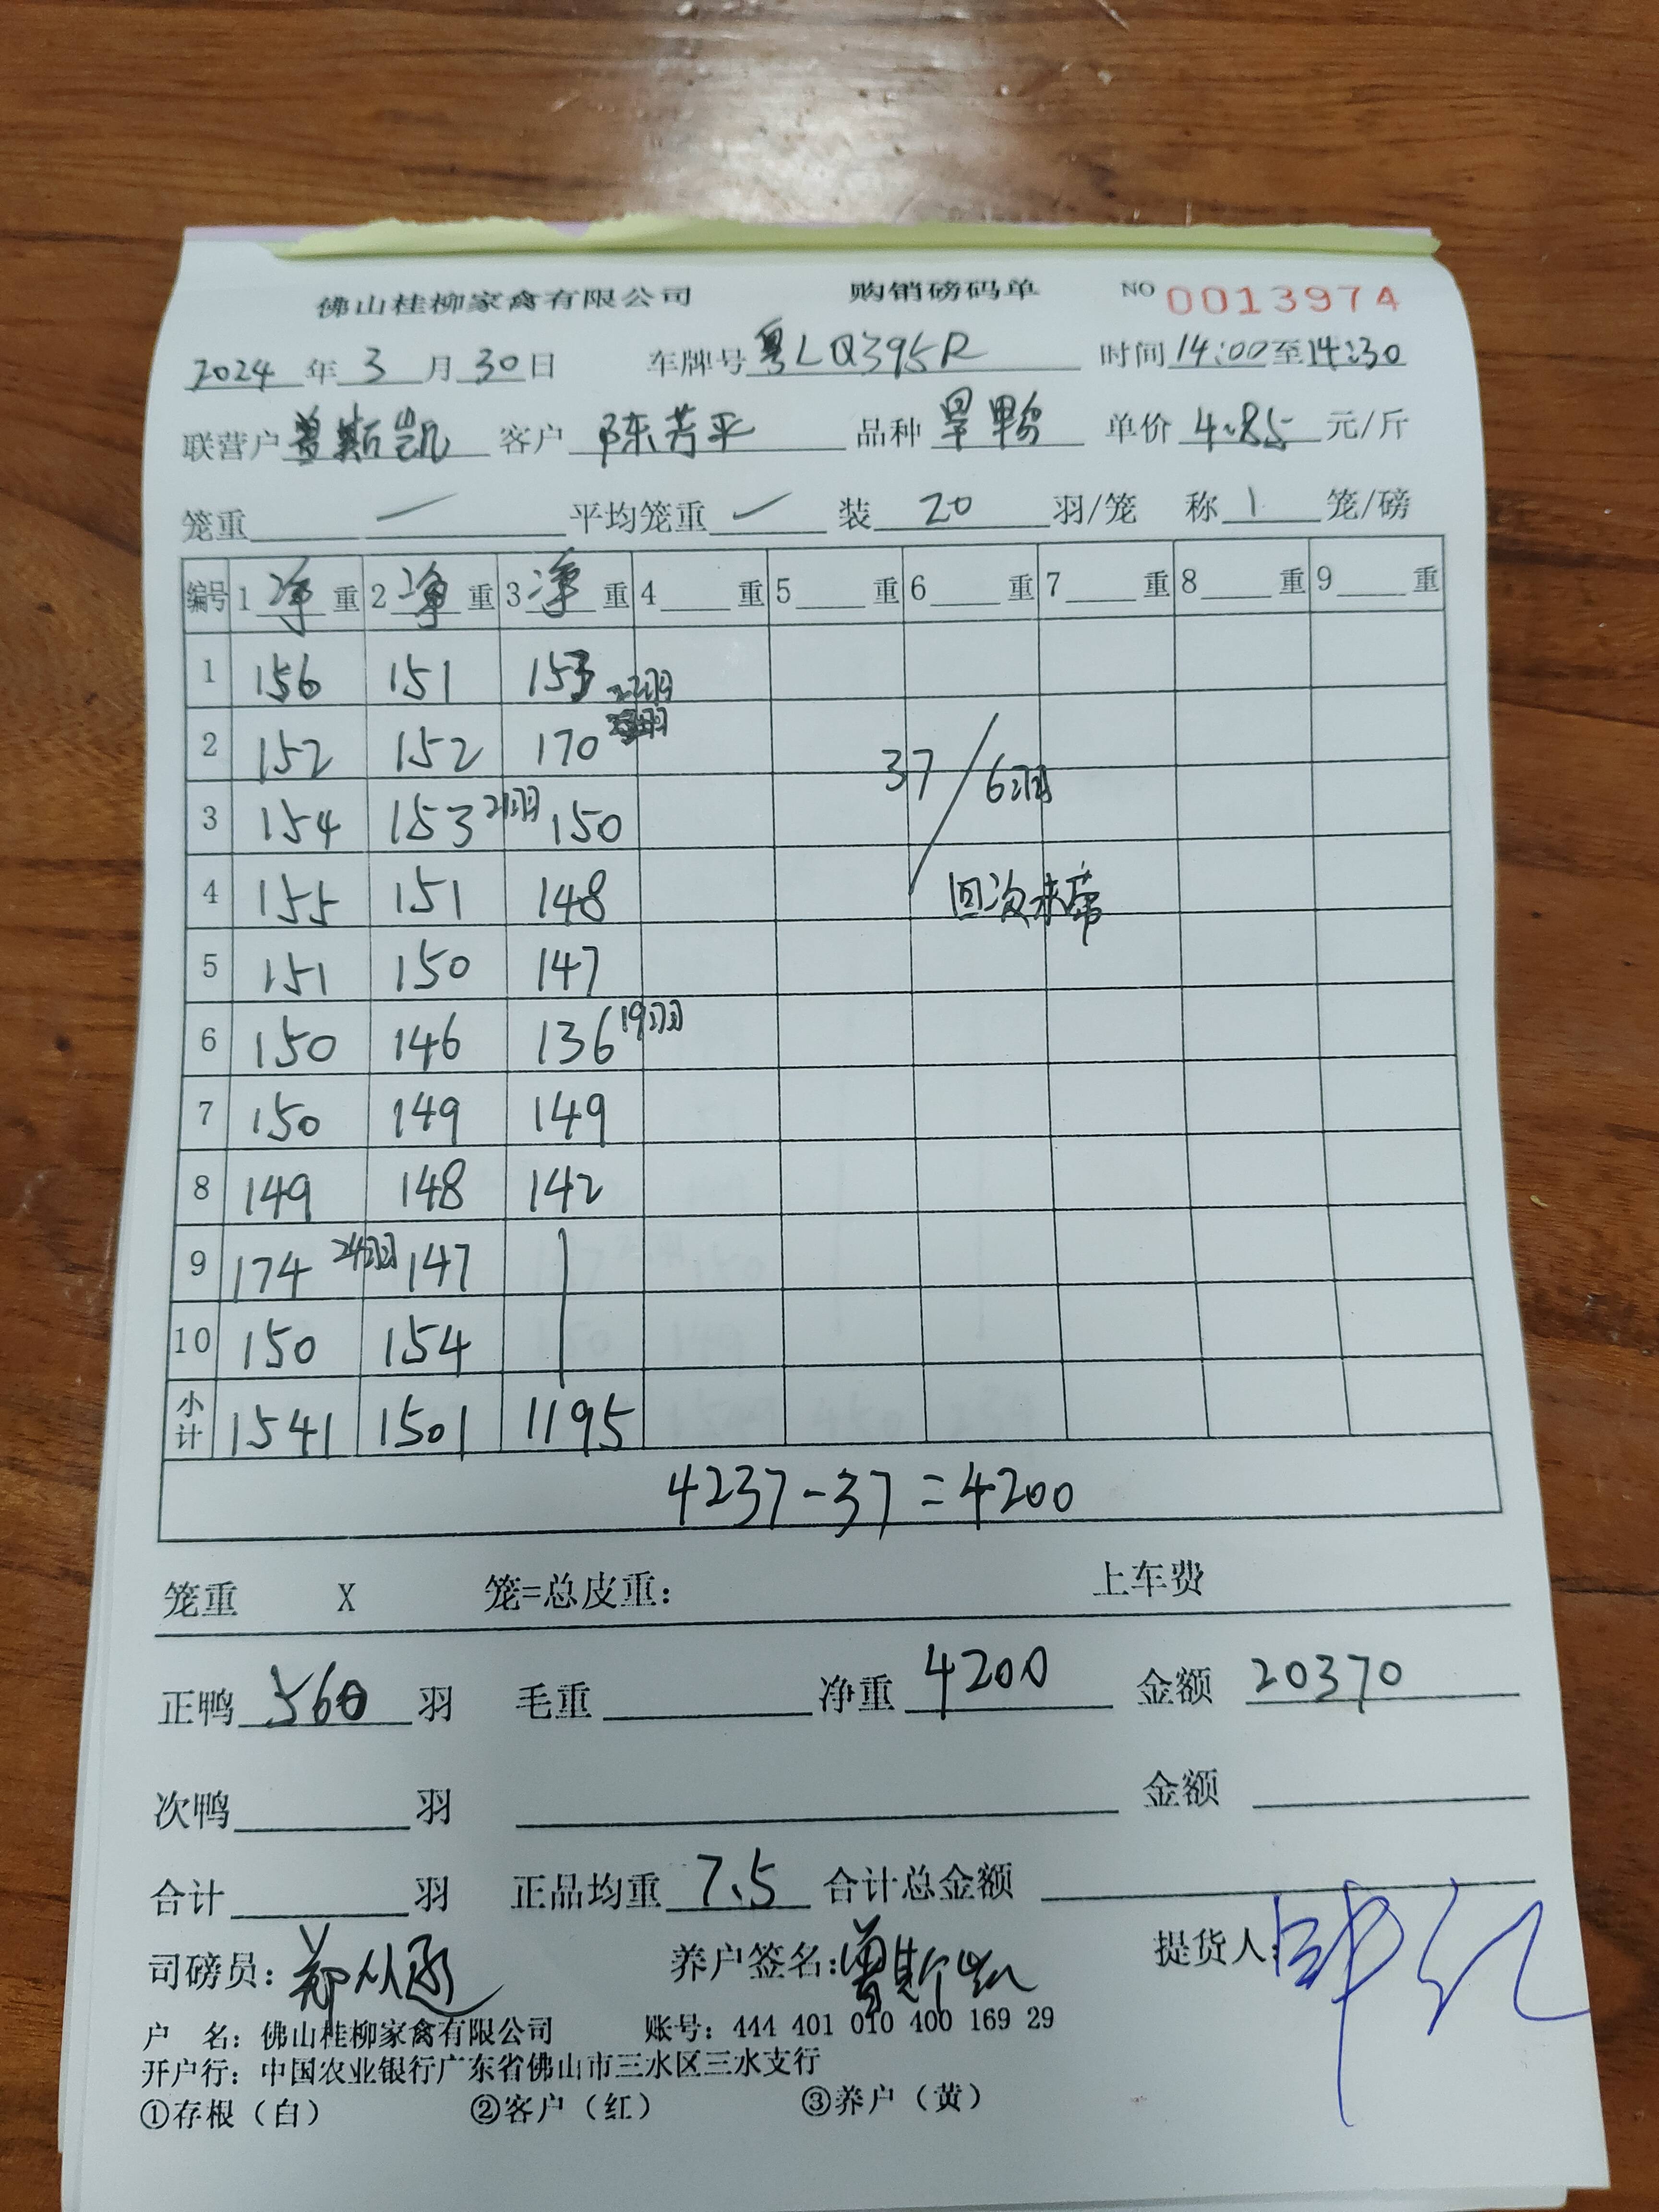 佛山桂柳家禽有限公司 购销磅码单 NO 0013974
2024年3月30日 车牌号粤LQ395R 时间14:00至14:30
联营户曾斯凯 客户陈芳平 品种 单价4.85元/斤
笼重 平均笼重 装20羽/笼 称1笼/磅
编号 1净重 2净重 3净重 4重 5重 6重 7重 8重 9重
1 156 151 153
2 152 152 170 22羽
3 154 153 21羽 150 37/6羽
4 155 151 148 回次未席
5 151 150 147
6 150 146 136 19羽
7 150 149 149
8 149 148 142
9 174 24羽 147
10 150 154
小计 1541 1501 1195
4237-37=4200
笼重 X 笼=总皮重: 上车费
正鸭560羽 毛重 净重4200 金额20370
次鸭 羽 金额
合计 羽 正品均重7.5 合计总金额
司磅员: 养户签名:曾斯凯 提货人:
户 名: 佛山桂柳家禽有限公司 账号: 444 401 010 400 169 29
开户行: 中国农业银行广东省佛山市三水区三水支行
①存根（白） ②客户（红） ③养户（黄）